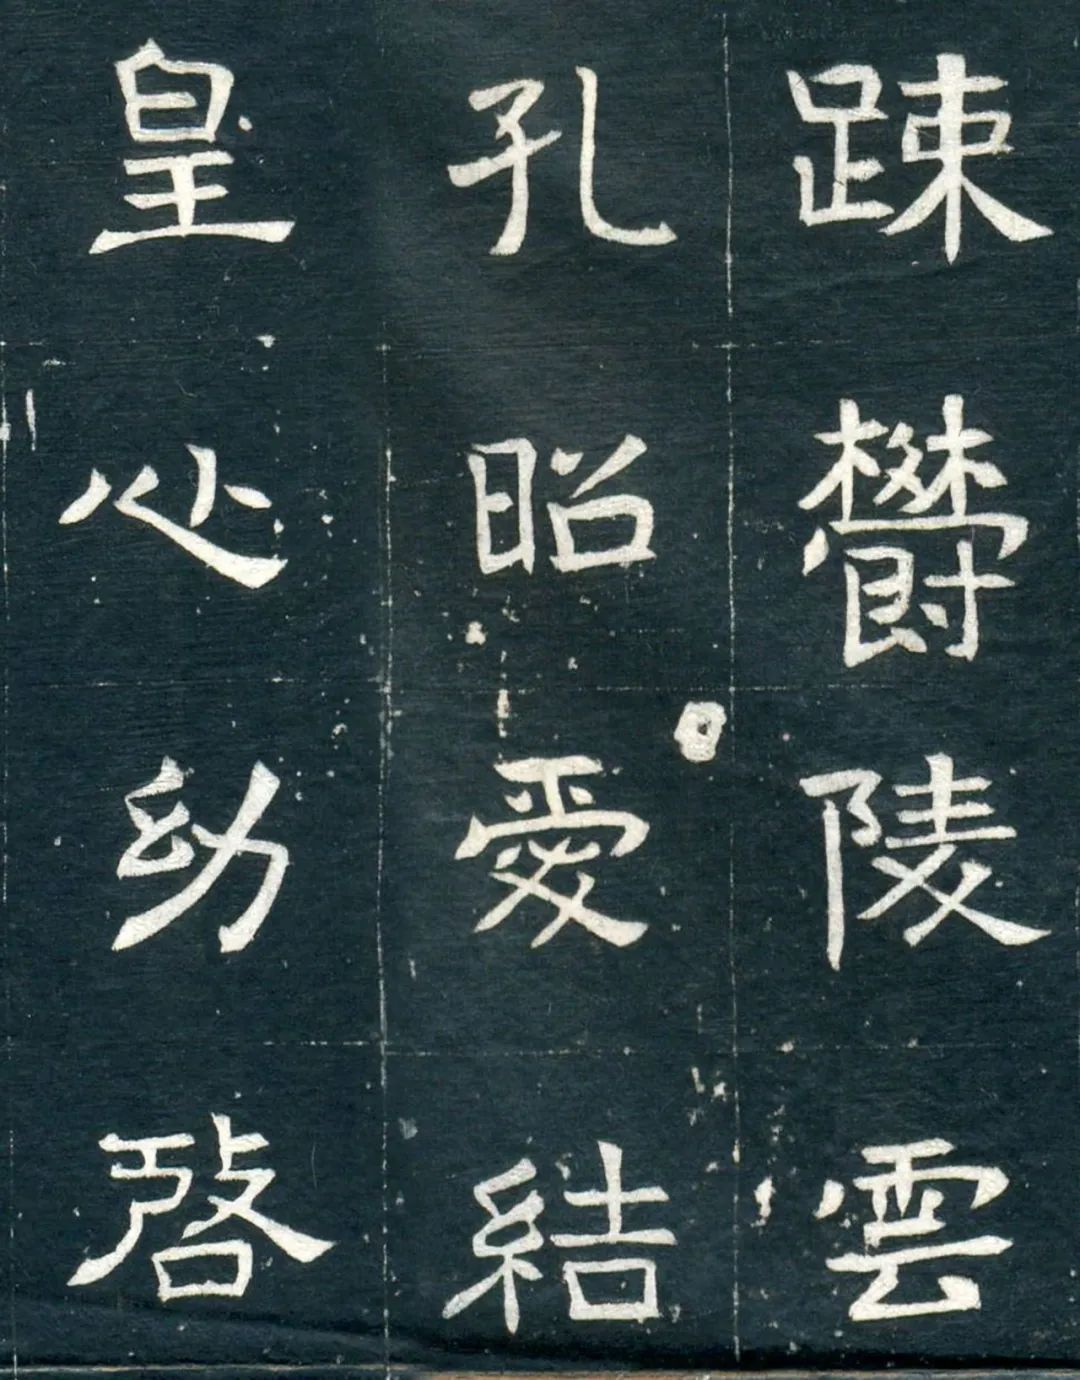 踈欝陵雲
孔昭愛結
皇心幼啓